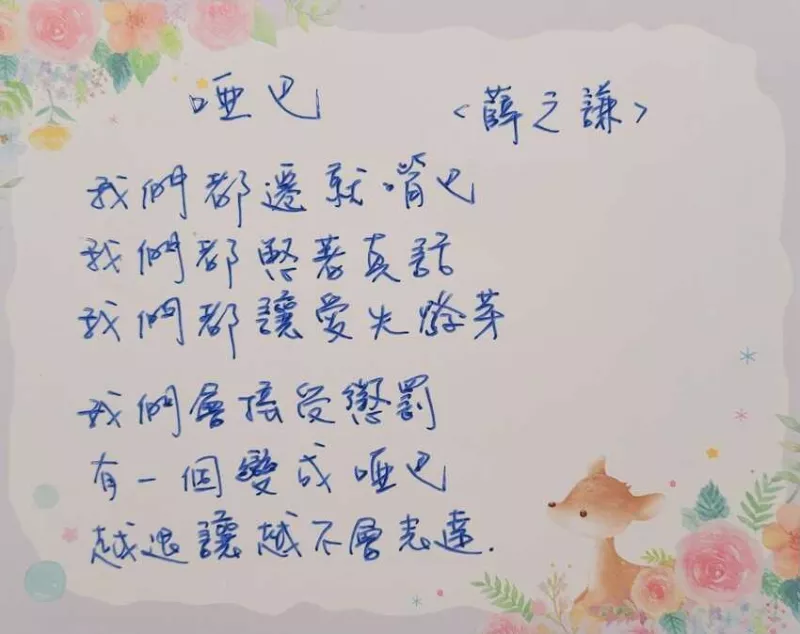 啞巴 <薛之謙>
我們都遷就嘴巴
我們都憋著真話
我們都讓愛失 芽
我們會接受懲罰
有一個變成啞巴
越退讓越不會表達.